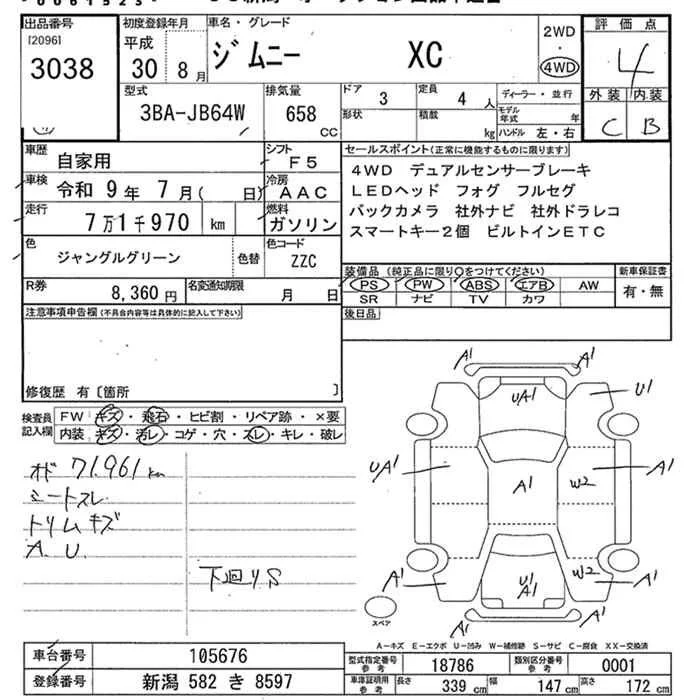 出品番号
[2096]
3038
初度登録年月
平成
30 8月
車名・グレード
ジムニー XC
2WD
・
4WD
評価点
4
外装 内装
C B
型式
3BA-JB64W
排気量
658 CC
ドア 3
定員 4 人
ディーラー・並行
形状
積載 kg
モデル年式 年
ハンドル 左・右
車歴
自家用
シフト
F5
車検
令和 9年 7月( 日)
冷房
AAC
走行
7万1千970 km
燃料
ガソリン
色
ジャングルグリーン
色替
色コード
ZZC
R券
8,360円
名変通知期限
月 日
セールスポイント(正常に機能するものに限ります)
4WD デュアルセンサーブレーキ
LEDヘッド フォグ フルセグ
バックカメラ 社外ナビ 社外ドラレコ
スマートキー2個 ビルトインETC
装備品(純正品に限り○をつけてください)
新車保証書
PS PW ABS エアB AW
SR ナビ TV カワ
有・無
注意事項申告欄(不具合内容等は具体的に記入して下さい)
後日品
修復歴 有〔箇所 〕
検査員記入欄
FW キズ・飛石・ヒビ割・リペア跡・×要
内装 キズ・汚レ・コゲ・穴・スレ・キレ・破レ
オド 71,961km
シートスレ
トリムキズ
A.U.
下回りS
A1
A1
UA1
U1
UA1
A1
W2
A1
A1
U1
A1
W2
A1
A1
A1
スペア
A-キズ E-エクボ U-凹み W-補修跡 S-サビ C-腐食 XX-交換済
車台番号
105676
登録番号
新潟 582 き 8597
型式指定番号 参考
18786
類別区分番号 参考
0001
車庫証明用 参考
長さ 339 cm
幅 147 cm
高さ 172 cm